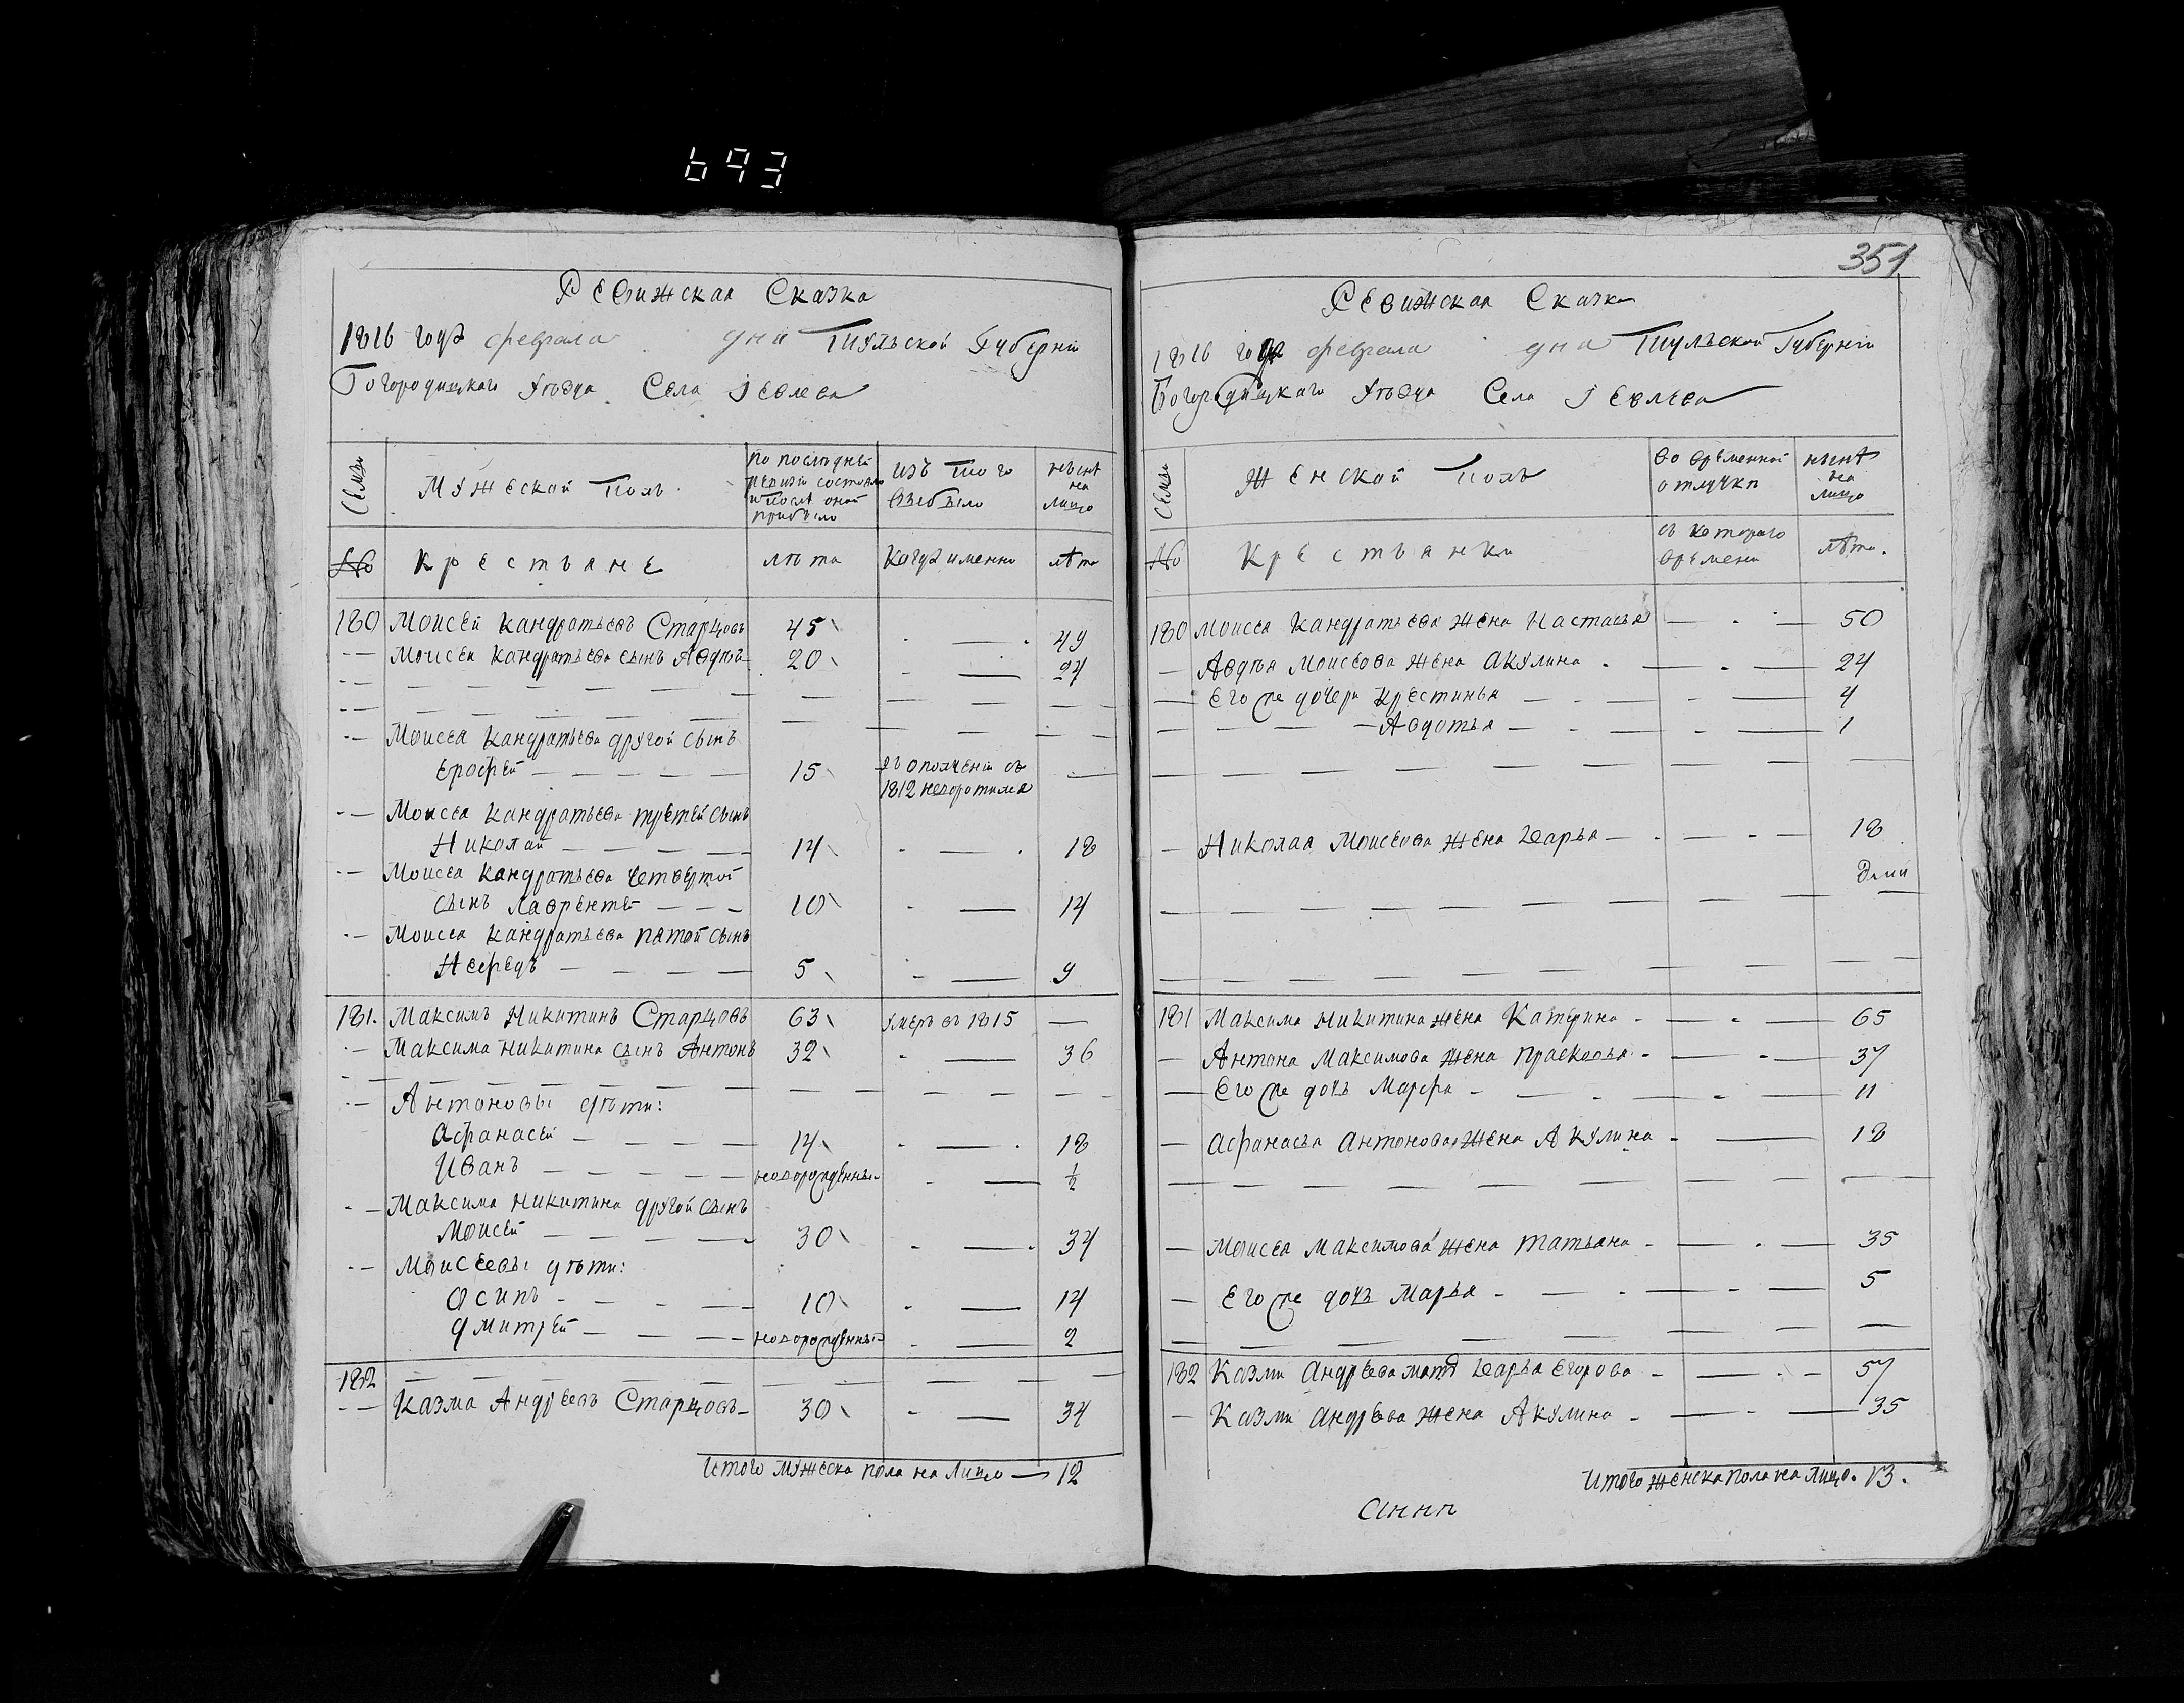 693
Ревижская Сказка
1816 года февраля дня Тульской Губерніи
Богородицкаго Уѣзда Села Іевлева
Семьи
Мужеской Полъ
по послѣдней ревизіи состояло и после оной прибыло
изъ того выбыло
нынѣ на лицо
№
Крестьяне
лѣта
Когда именно
лѣта
180 Моисей Кандратьевъ Старцовъ 45 — 49
Моисея Кандратьева сынъ Авдѣй 20 — 24
Моисея Кандратьева другой сынъ
Ерофей — 15 въ ополченіи съ —
1812 неворотился
Моисея Кандратьева третей сынъ
Николай — 14 — 18
Моисея Кандратьева четвертой
сынъ Лаврентей — 10 — 14
Моисея Кандратьева пятой сынъ
Нефедъ — 5 — 9
181. Максимъ Никитинъ Старцовъ 63 умеръ въ 1815 —
Максима Никитина сынъ Антонъ 32 — 36
Антоновы дѣти:
Афанасей — 14 — 18
Иванъ — новорожденный — 1/2
Максима Никитина другой сынъ
Моисей — 30 — 34
Моисеевы дѣти:
Осипъ — 10 — 14
Дмитрей — новорожденный — 2
182
Казма Андреевъ Старцовъ 30 — 34
Итого мужеска пола на лицо — 12
351
Ревижская Сказка
1816 года февраля дня Тульской Губерніи
Богородицкаго Уѣзда Села Іевлева
Семьи
Женской Полъ
во временной отлучки
нынѣ на лицо
№
Крестьянки
съ котораго времени
лѣта.
180 Моисея Кандратьева жена Настасья — 50
Авдѣя Моисеова жена Акулина — 24
Его же дочери Крестинья — 4
Авдотья — 1
Николая Моисеова жена Дарья — 18
181 Максима Никитина жена Катерина — 65
Антона Максимова жена Прасковья — 37
Его же дочь Марфа — 11
Афанасья Антонова жена Акулина — 18
Моисея Максимова жена Татьяна — 35
Его же дочь Марья — 5
182 Казми Андреева мать Дарья Егорова — 57
Казми Андреева жена Акулина — 35
Итого женска пола на лицо. 13.